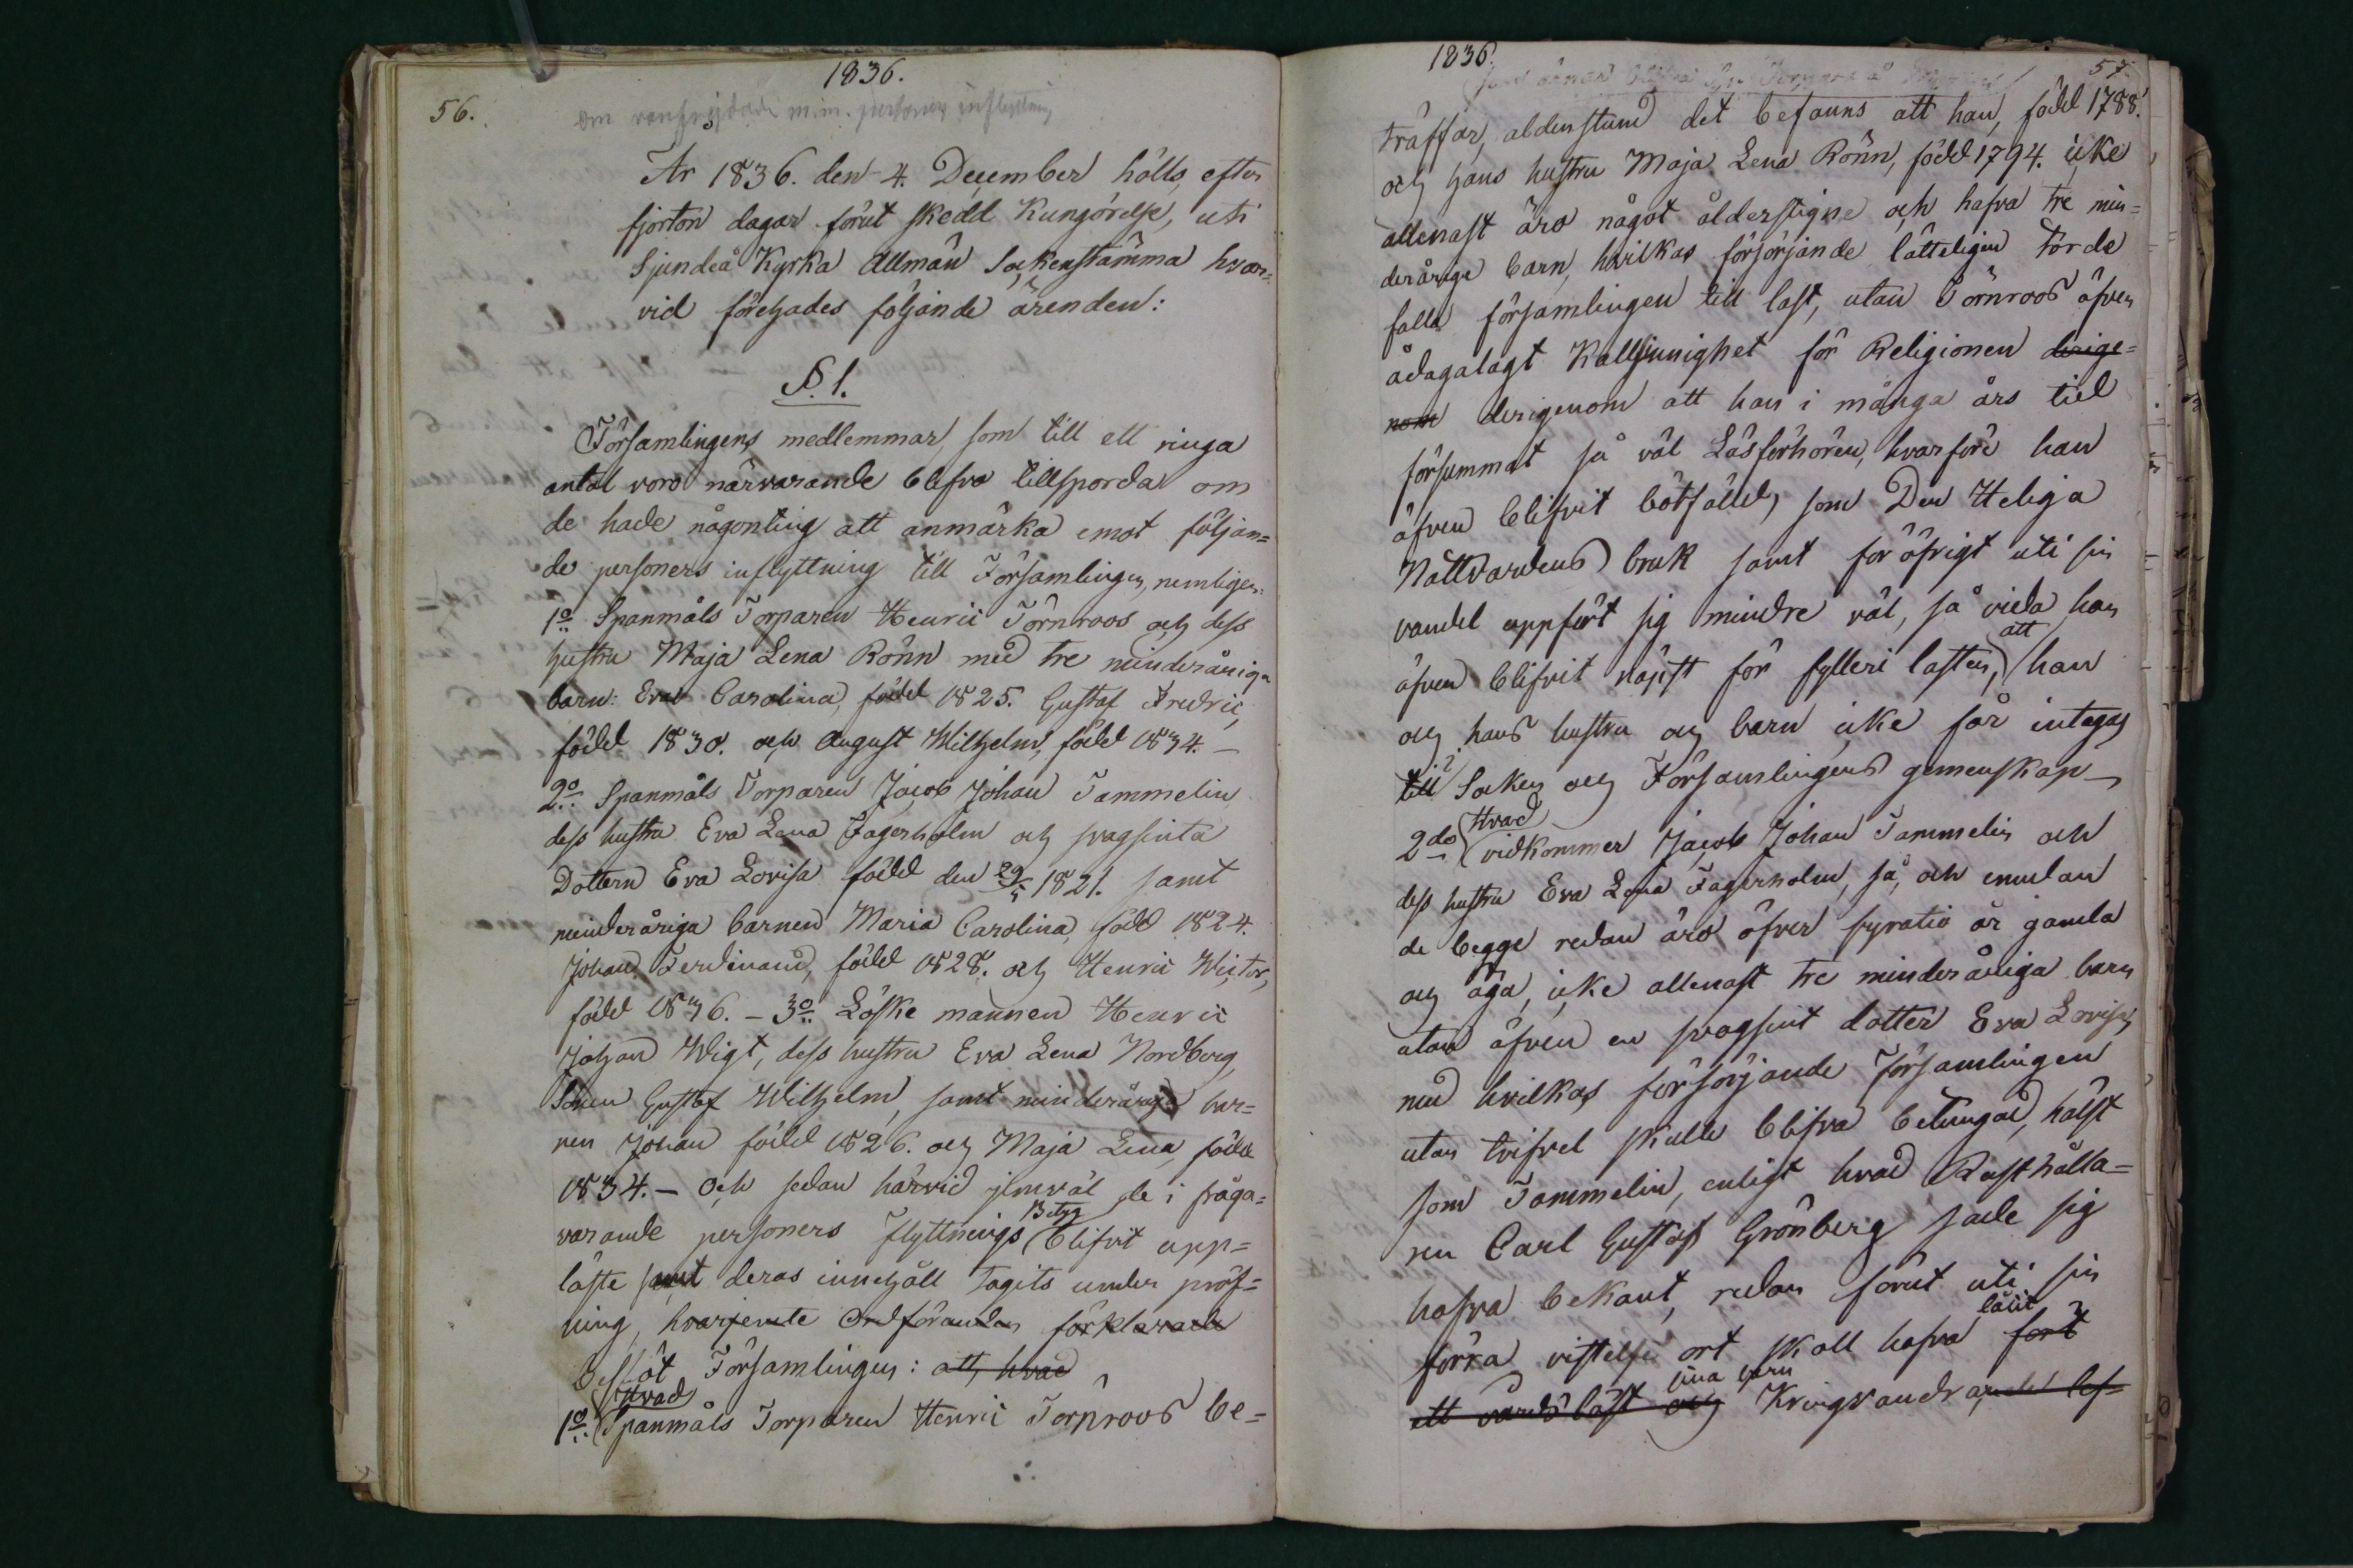 1836.
56.
om m.m. personers inflyttning
År 1836. den 4. December hölls, efter
fjorton dagar förut skedd Kungörelse, uti
Sjundeå Kyrka Allmän Sockenstämma hvar=
vid förehades följande ärenden:
§. 1.
Församlingens medlemmar, som till ett ringa
antal voro närvarande blefvo tillsporda om
de hade någonting att anmärka emot följan=
de personers inflyttning till Församlingen, nemligen:
1o Spanmåls Torparen Henric Törnroos och dess
hustru Maja Lena Rönn med tre minderåriga
barn: Eva Carolina, född 1825. Gustaf Fredric,
född 1830. och August Wilhelm, född 1834. —
2o Spanmåls Torparen Jacob Johan Tammelin
dess hustru Eva Lena Fagerholm och svagsinta
Dottern Eva Lovisa född den 29/5 1821. samt
minderåriga barnen Maria Carolina, född 1824.
Johan Ferdinand, född 1828. och Henric Wictor,
född 1836. — 3o Löske mannen Henric
Johan Wigt, dess hustru Eva Lena Nordberg,
Sonen Gustaf Wilhelm, samt minderåriga bar=
nen Johan född 1826. och Maja Lena, född
1834. — Och sedan härvid jemväl de i fråga=
varande personers flyttnings Betyg blifvit upp=
läste samt deras innehåll tagits under pröf=
ning, hvarjemte Ordföranden förklarade
Beslöt Församlingen: att, hvad
1o Hvad Spanmåls Torparen Henric Törnroos be=
1836.
57.
träffar, alldenstund det befanns att han, född 1788.
och hans hustru Maja Lena Rönn, född 1794. icke
allenast äro något ålderstigne och hafva tre min=
derårige barn, hvilkas försörjande lätteligen torde
falla församlingen till last, utan Törnroos äfven
ådagalagt Kallsinnighet för Religionen derige=
nom derigenom att han i många års tid
försummat så väl Läsförhören, hvarföre han
äfven blifvit bötfälld, som Den Heliga
Nattvardens bruk samt för öfrigt uti sin
vandel uppfört sig mindre väl, så vida han
äfven blifvit näpst för fylleri lasten, att han
och hans hustru och barn icke får intagas
till i Socken och Församlingens gemenskap —
2do Hvad vidkommer Jacob Johan Tammelin och
dess hustru Eva Lena Fagerholm, så, och emedan
de begge redan äro öfver fyratio år gamla
och äga, icke allenast tre minderåriga barn
utan äfven en svagsint dotter Eva Lovisa,
med hvilkas försörjande Församlingen
utan tvifvel skulle blifva betungad, hälst
som Tammelin, enligt hvad Rusthålla=
ren Carl Gustaf Grönberg sade sig
hafva bekant, redan förut uti sin
förra vistelse ort skall hafva låtit fört
ett vårdslöst och sina barn Kringvandra, ande lef=